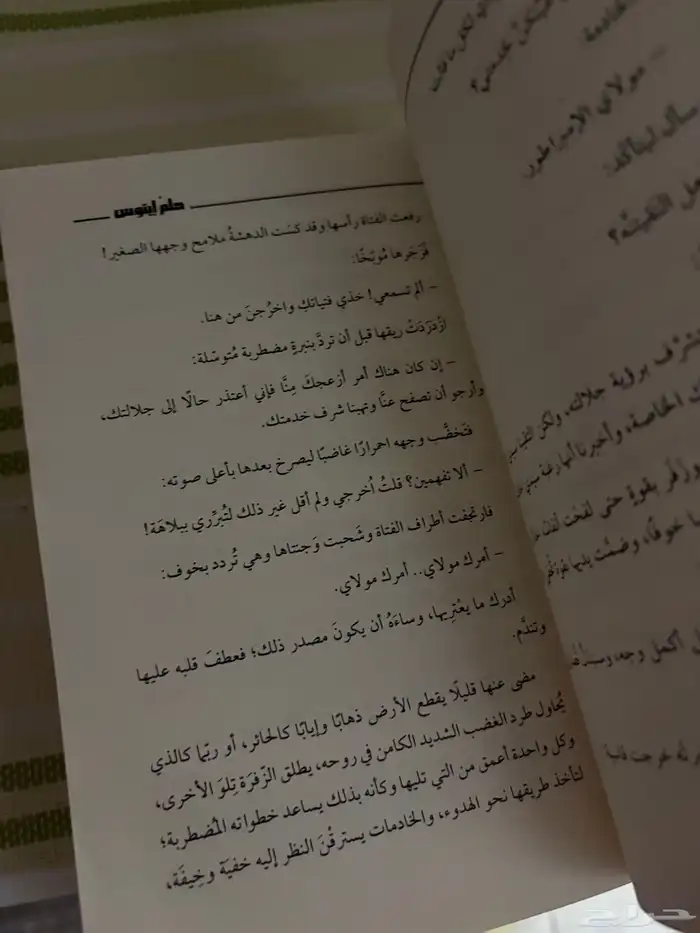 حلم إيتوس
رفعت الفتاة رأسها وقد كسَت الدهشةُ ملامح وجهها الصغير!
فَزَجَرها مُوبّخًا:
– ألم تسمعي! خذي فتياتكِ واخرُجنَ من هنا.
ازْدَرَدَتْ ريقها قبل أن تردَّ بنبرةٍ مضطربة مُتوسّلة:
– إن كان هناك أمر أزعجكَ مِنَّا فإني أعتذر حالًا إلى جلالتك،
وأرجو أن تصفح عنَّا وتهبنا شرف خدمتك.
فتَخضَّب وجهه احمرارًا غاضبًا ليصرخ بعدها بأعلى صوته:
– ألا تفهمين؟ قلتُ اُخرجي ولم أقل غير ذلك لتُبرِّري ببلاهَة!
فارتجفت أطراف الفتاة وشَحبت وَجنتاها وهي تُردد بخوف:
– أمرك مولاي.. أمرك مولاي.
أدرك ما يعْتريها، وساءَهُ أن يكونَ مصدر ذلك؛ فعطفَ قلبه عليها
وتندَّم.
مضى عنها قليلًا يقطع الأرض ذهابًا وإيابًا كالحائر، أو ربّما كالذي
يُحاول طرد الغضب الشديد الكامن في روحه، يطلق الزّفرَة تِلوَ الأخرى،
وكل واحدة أعمق من التي تليها وكأنه بذلك يساعد خطواته المُضطربة؛
لتأخذ طريقها نحو الهدوء، والخادمات يسترقْنَ النظر إليه خفيَة وخِيفَة،
– مولاي الإمبراطور
سأل ليتأكد:
التقيتُه؟
برؤية جلالته، ولكن
الخاصة، وأخبرنا
وزفر بقوةٍ حتى
خوفًا، وضمَّت يديها
أكمل وجه،
خرجت
حراج